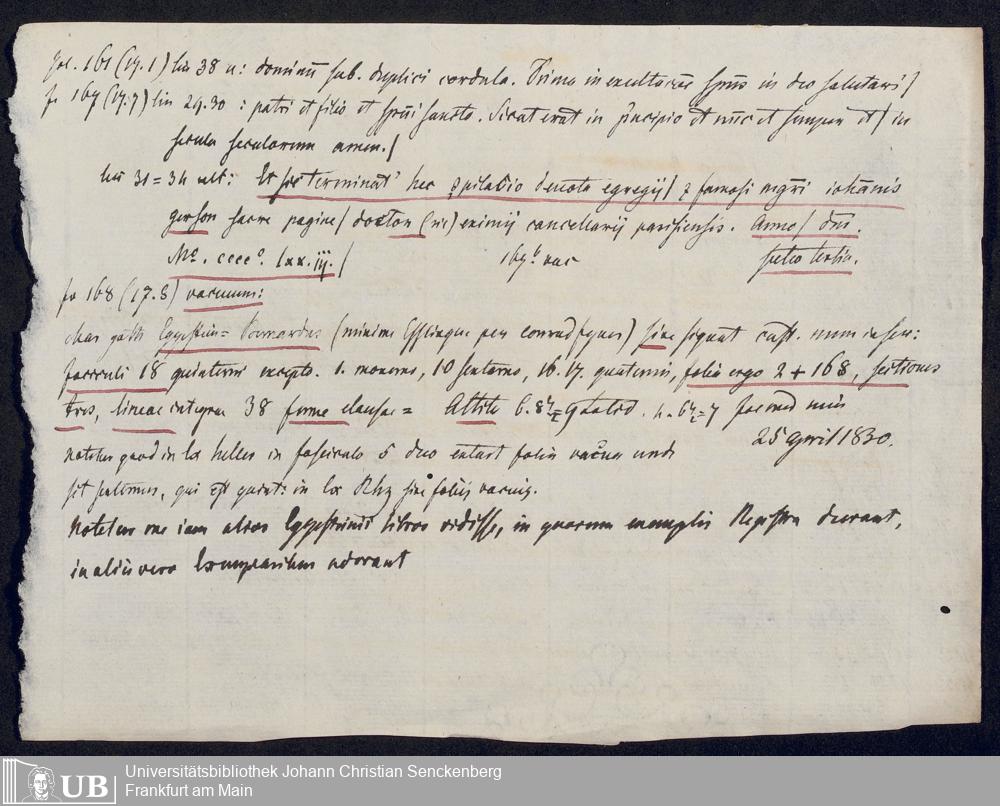 fol. 161 (17. 1) lin 38 u: dominum sub. duplici cordula. Primo in exultacione spūs in deo salutari /
fo 167 (17.7) lin 29.30 : patri et filio et spūi sancto. Sicut erat in pncipio et nūc et semper et / in
secula seculorum amen. /
lin 31 = 34 ult: Et sic terminat' hec pilatio devota egregij / famosi mgri iohānis
gerson sacre pagine / doctor (sic) eximij cancellarij parisiensis. Anno / dni.
Mº. ccccº. lxx. iij. /
167b vac
fo 168 (17.8) vacuum:
char goth Eggestein = (minime Esslingae per conrad fyner) sine signat cust. num
fasciculi 18 quinterni excepto. 1. 10 16. 17. quaterni, folia ergo 2 + 168, sectiones
tres, lineae integrae 38 forme = Altit 6. 8
25 april 1830.
notetur quod in Ex helles in fasciculo 5 duo extant folia vacua unde
sit qui est quint: in Ex Rhz sine foliis vacuis.
Notetur me iam alios Eggesteinii libros vidisse, in quorum exemplis Registra deerant,
in aliis vero Exemplaribus aderant
Universitätsbibliothek Johann Christian Senckenberg
UB Frankfurt am Main